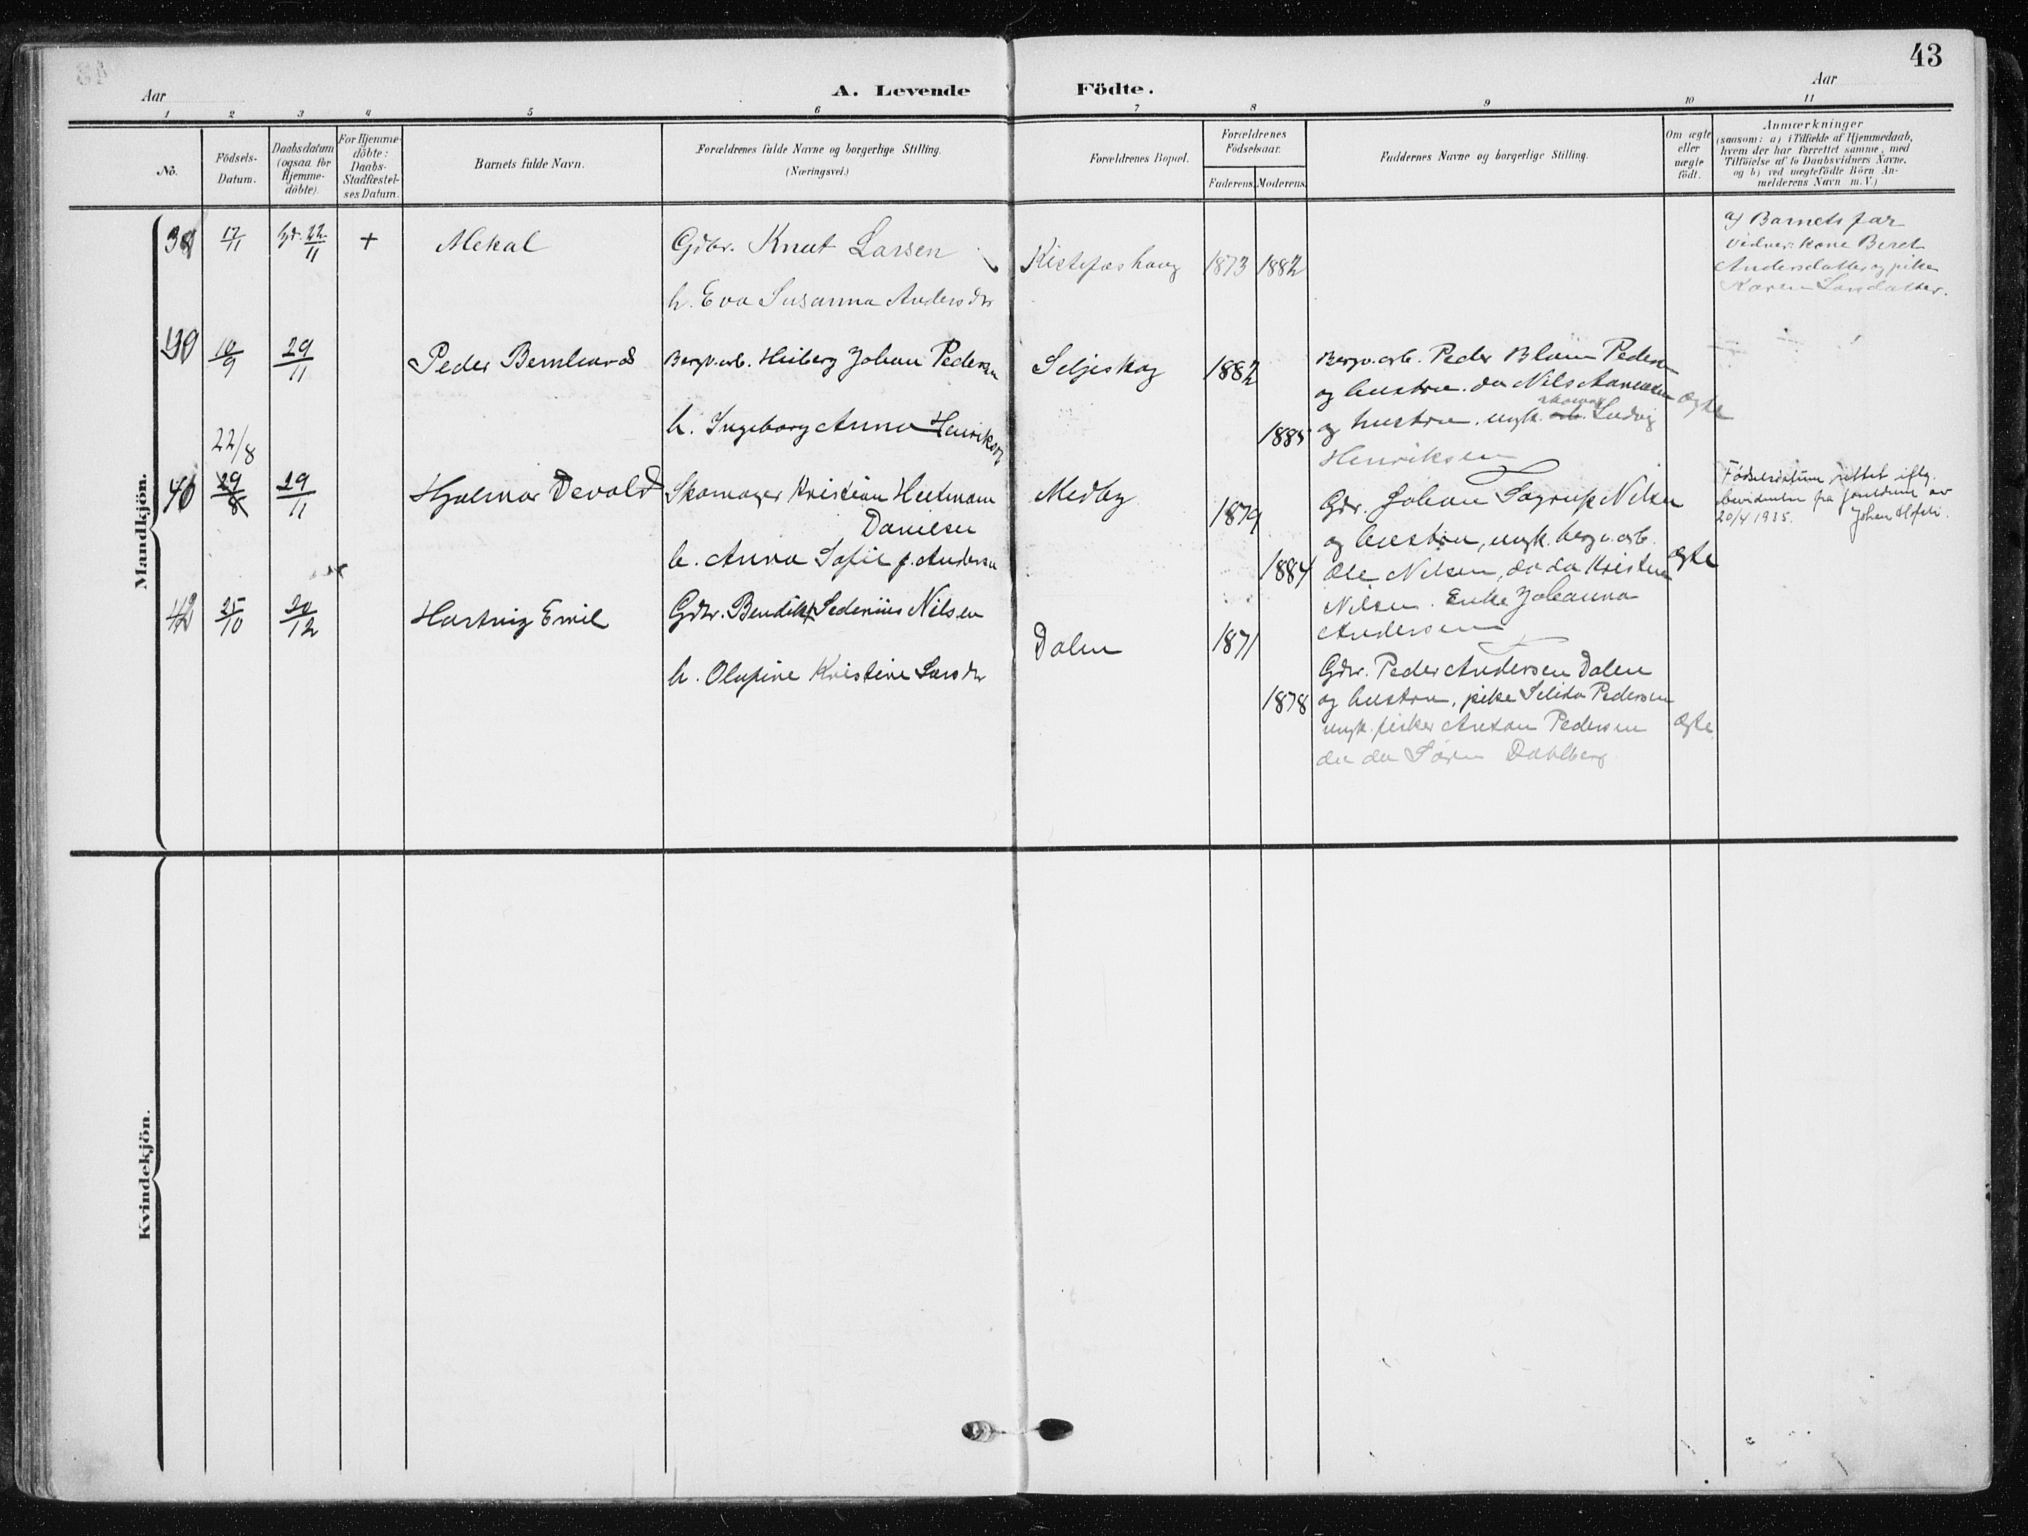 43
Aar
A. Levende Födte.
Aar
1 2 3 4 5 6 7 8 9 10 11
No.
Födsels-
Datum.
Daabsdatum
(ogsaa for
Hjemme-
döbte)
For Hjemme-
döbte:
Daabs-
Stadfæstel-
ses Datum.
Barnets fulde Navn.
Forældrenes fulde Navne og borgerlige Stilling.
(Næringsvei.)
Forældrenes Bopæl.
Forældrenes
Födselsaar.
Faderens. Moderens.
Faddernes Navne og borgerlige Stilling.
Om ægte
eller
uægte
födt.
Anmærkninger
(saasom: a) i Tilfælde af Hjemmedaab,
hvem der har forrettet samme, med
Tilföielse af to Daabsvidners Navne,
og b) ved uægtefödte Börn An-
melderens Navn m. V.)
Mandkjön.
17/11 22/11 + Mekal
Gdbr. Knut Larsen
h. Eva Susanna Andersdtr
1873 1882
a) Barnets far
vidner: kone Beret
Andersdatter og pike
Karen Larsdatter.
10/9 29/11 Peder Bernhard
Bergv.arb. Heiberg Johan Pedersen
h. Ingeborg Anna
Seljeskog 1882
1885
Bergv.arb. Peder Pedersen
og hustru. do Nils
og hustru. ungk. arb. Ludvig
skomag
Henriksen
Ægte
22/8
40 29/8 29/11 Hjalmar Devold
Skomager Kristian
Danielsen
h. Anna Sofie f. Andersen
Medby 1879
1884
Gdr. Johan Nilsen
og hustru, ungk. bergv.arb.
Ole Nilsen, do do Kristian
Nilsen. Enke Johanna
Andersen
Ægte
Fødselsdatum rettet iflg.
fra av
20/4 1935. Johan
42 25/10 20/12 Hartvig Emil
Gdbr. Bendikt Sedenius Nilsen
h. Olufine Kristine Larsdtr
Dalen 1871
1878
Gdbr. Peder Andersen Dalen
og hustru, pike Selida Pedersen
ungk. fisker Anton Pedersen
do do Søren Dahlberg
Ægte
Kvindekjön.